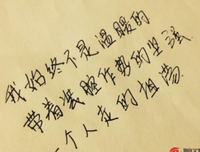 我始终不是温暖的
带着装腔作势的坚强
一个人走的伹荡